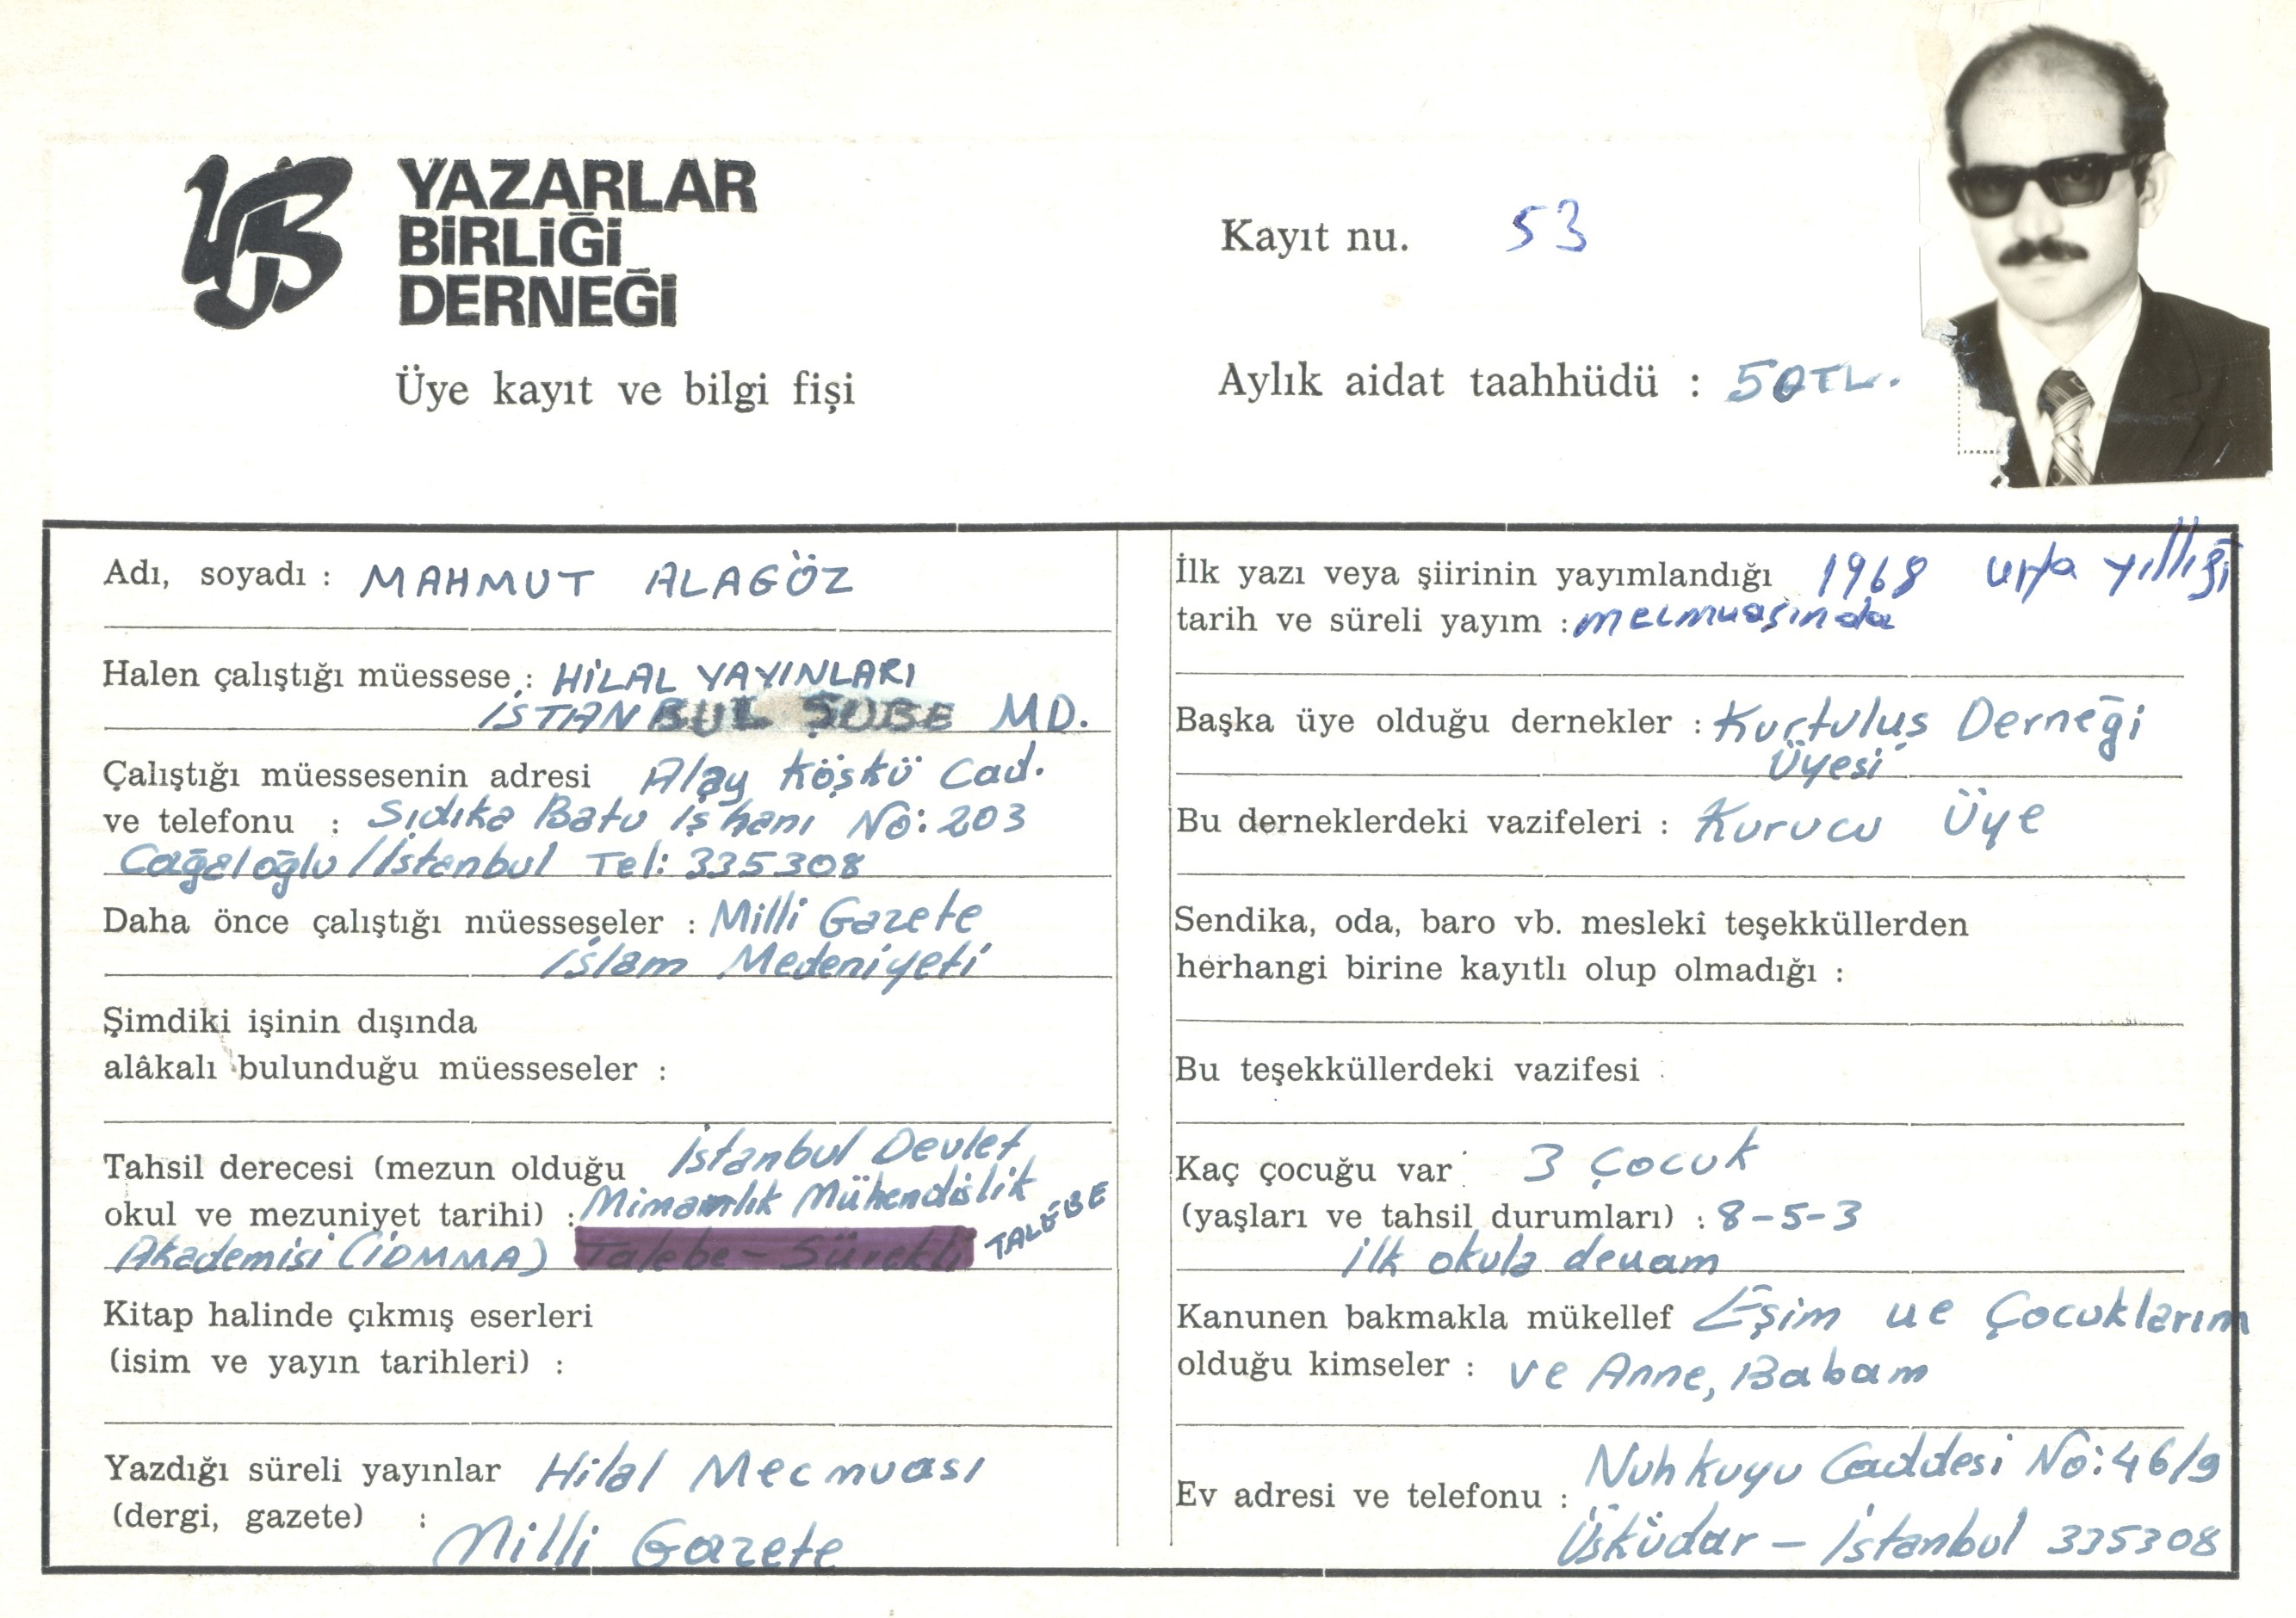 YAZARLAR
BİRLİĞİ
DERNEĞİ
Üye kayıt ve bilgi fişi
Kayıt nu. 53
Aylık aidat taahhüdü : 50TL.
Adı, soyadı : MAHMUT ALAGÖZ
Halen çalıştığı müessese : HİLAL YAYINLARI
İSTANBUL ŞUBE MD.
Çalıştığı müessesenin adresi Alay Köşkü Cad.
ve telefonu : Sıdıka Batu İşhanı No: 203
Cağaloğlu / İstanbul Tel: 335308
Daha önce çalıştığı müesseseler : Milli Gazete
İslam Medeniyeti
Şimdiki işinin dışında
alâkalı bulunduğu müesseseler :
Tahsil derecesi (mezun olduğu İstanbul Devlet
okul ve mezuniyet tarihi) : Mimarlık Mühendislik
Akademisi (İDMMA) Talebe - Sürekli TALEBE
Kitap halinde çıkmış eserleri
(isim ve yayın tarihleri) :
Yazdığı süreli yayınlar Hilal Mecmuası
(dergi, gazete) :
Milli Gazete
İlk yazı veya şiirinin yayımlandığı 1968 Urfa yıllığı
tarih ve süreli yayım : mecmuasında
Başka üye olduğu dernekler : Kurtuluş Derneği
Üyesi
Bu derneklerdeki vazifeleri : Kurucu Üye
Sendika, oda, baro vb. meslekî teşekküllerden
herhangi birine kayıtlı olup olmadığı :
Bu teşekküllerdeki vazifesi :
Kaç çocuğu var 3 Çocuk
(yaşları ve tahsil durumları) : 8-5-3
ilk okula devam
Kanunen bakmakla mükellef Eşim ve Çocuklarım
olduğu kimseler : ve Anne, Babam
Nuhkuyu Caddesi No: 46/9
Ev adresi ve telefonu :
Üsküdar - İstanbul 335308